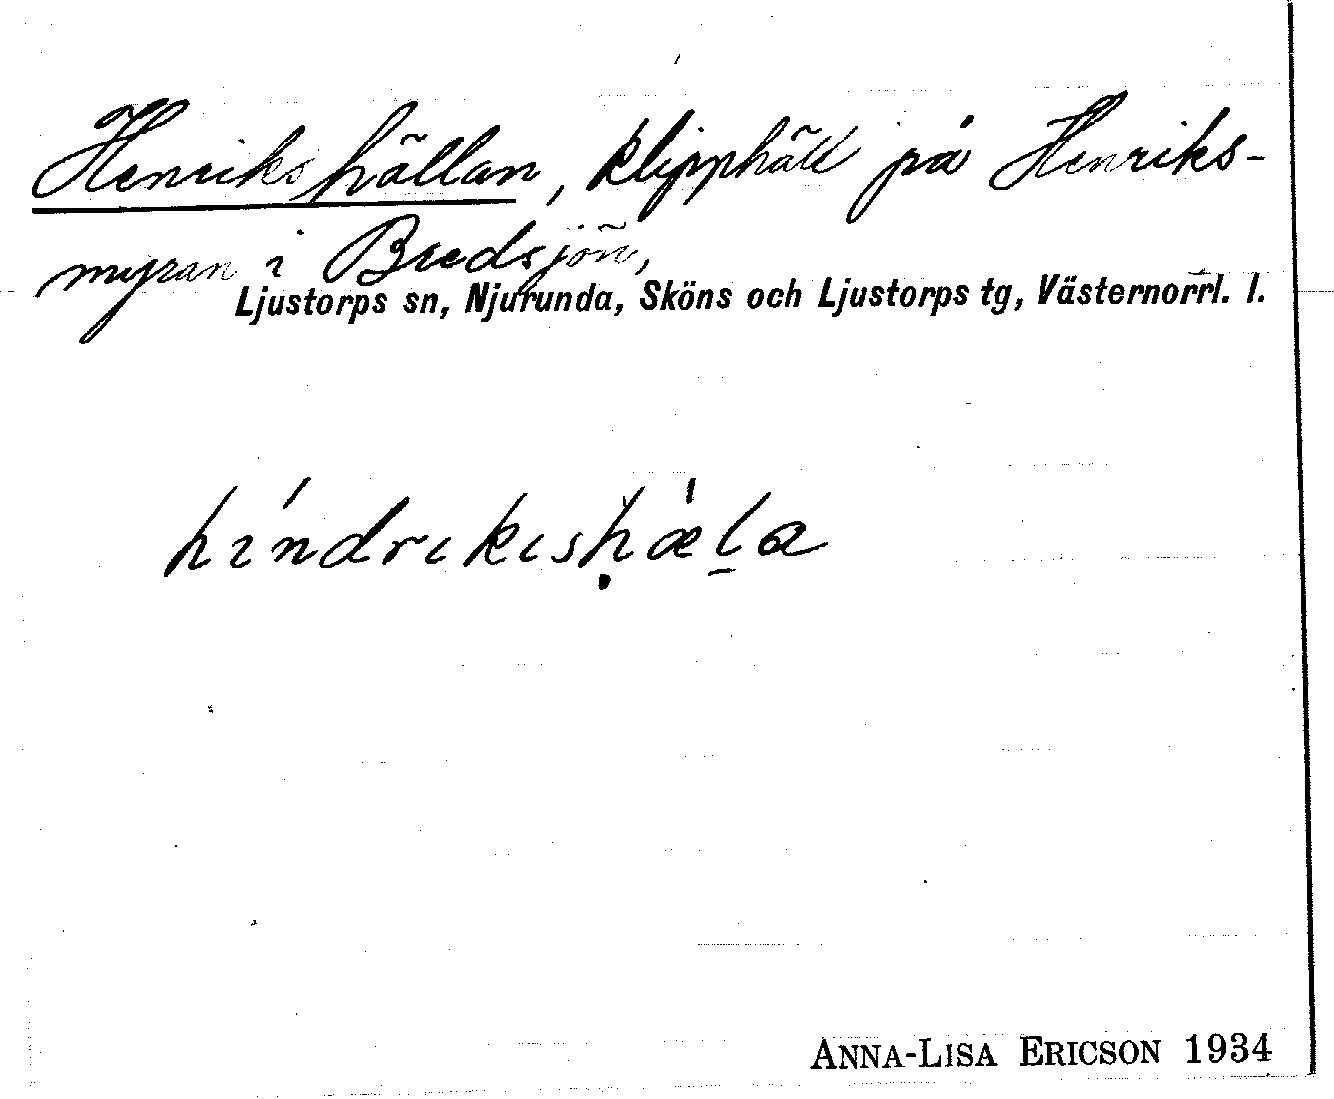 Henrikshällan, klipphäll på Henriks-
myran i Bredsjön,
Ljustorps sn, Njurunda, Sköns och Ljustorps tg, Västernorrl. l.
híndrikisḥæ̀l̠a
ANNA-LISA ERICSON 1934